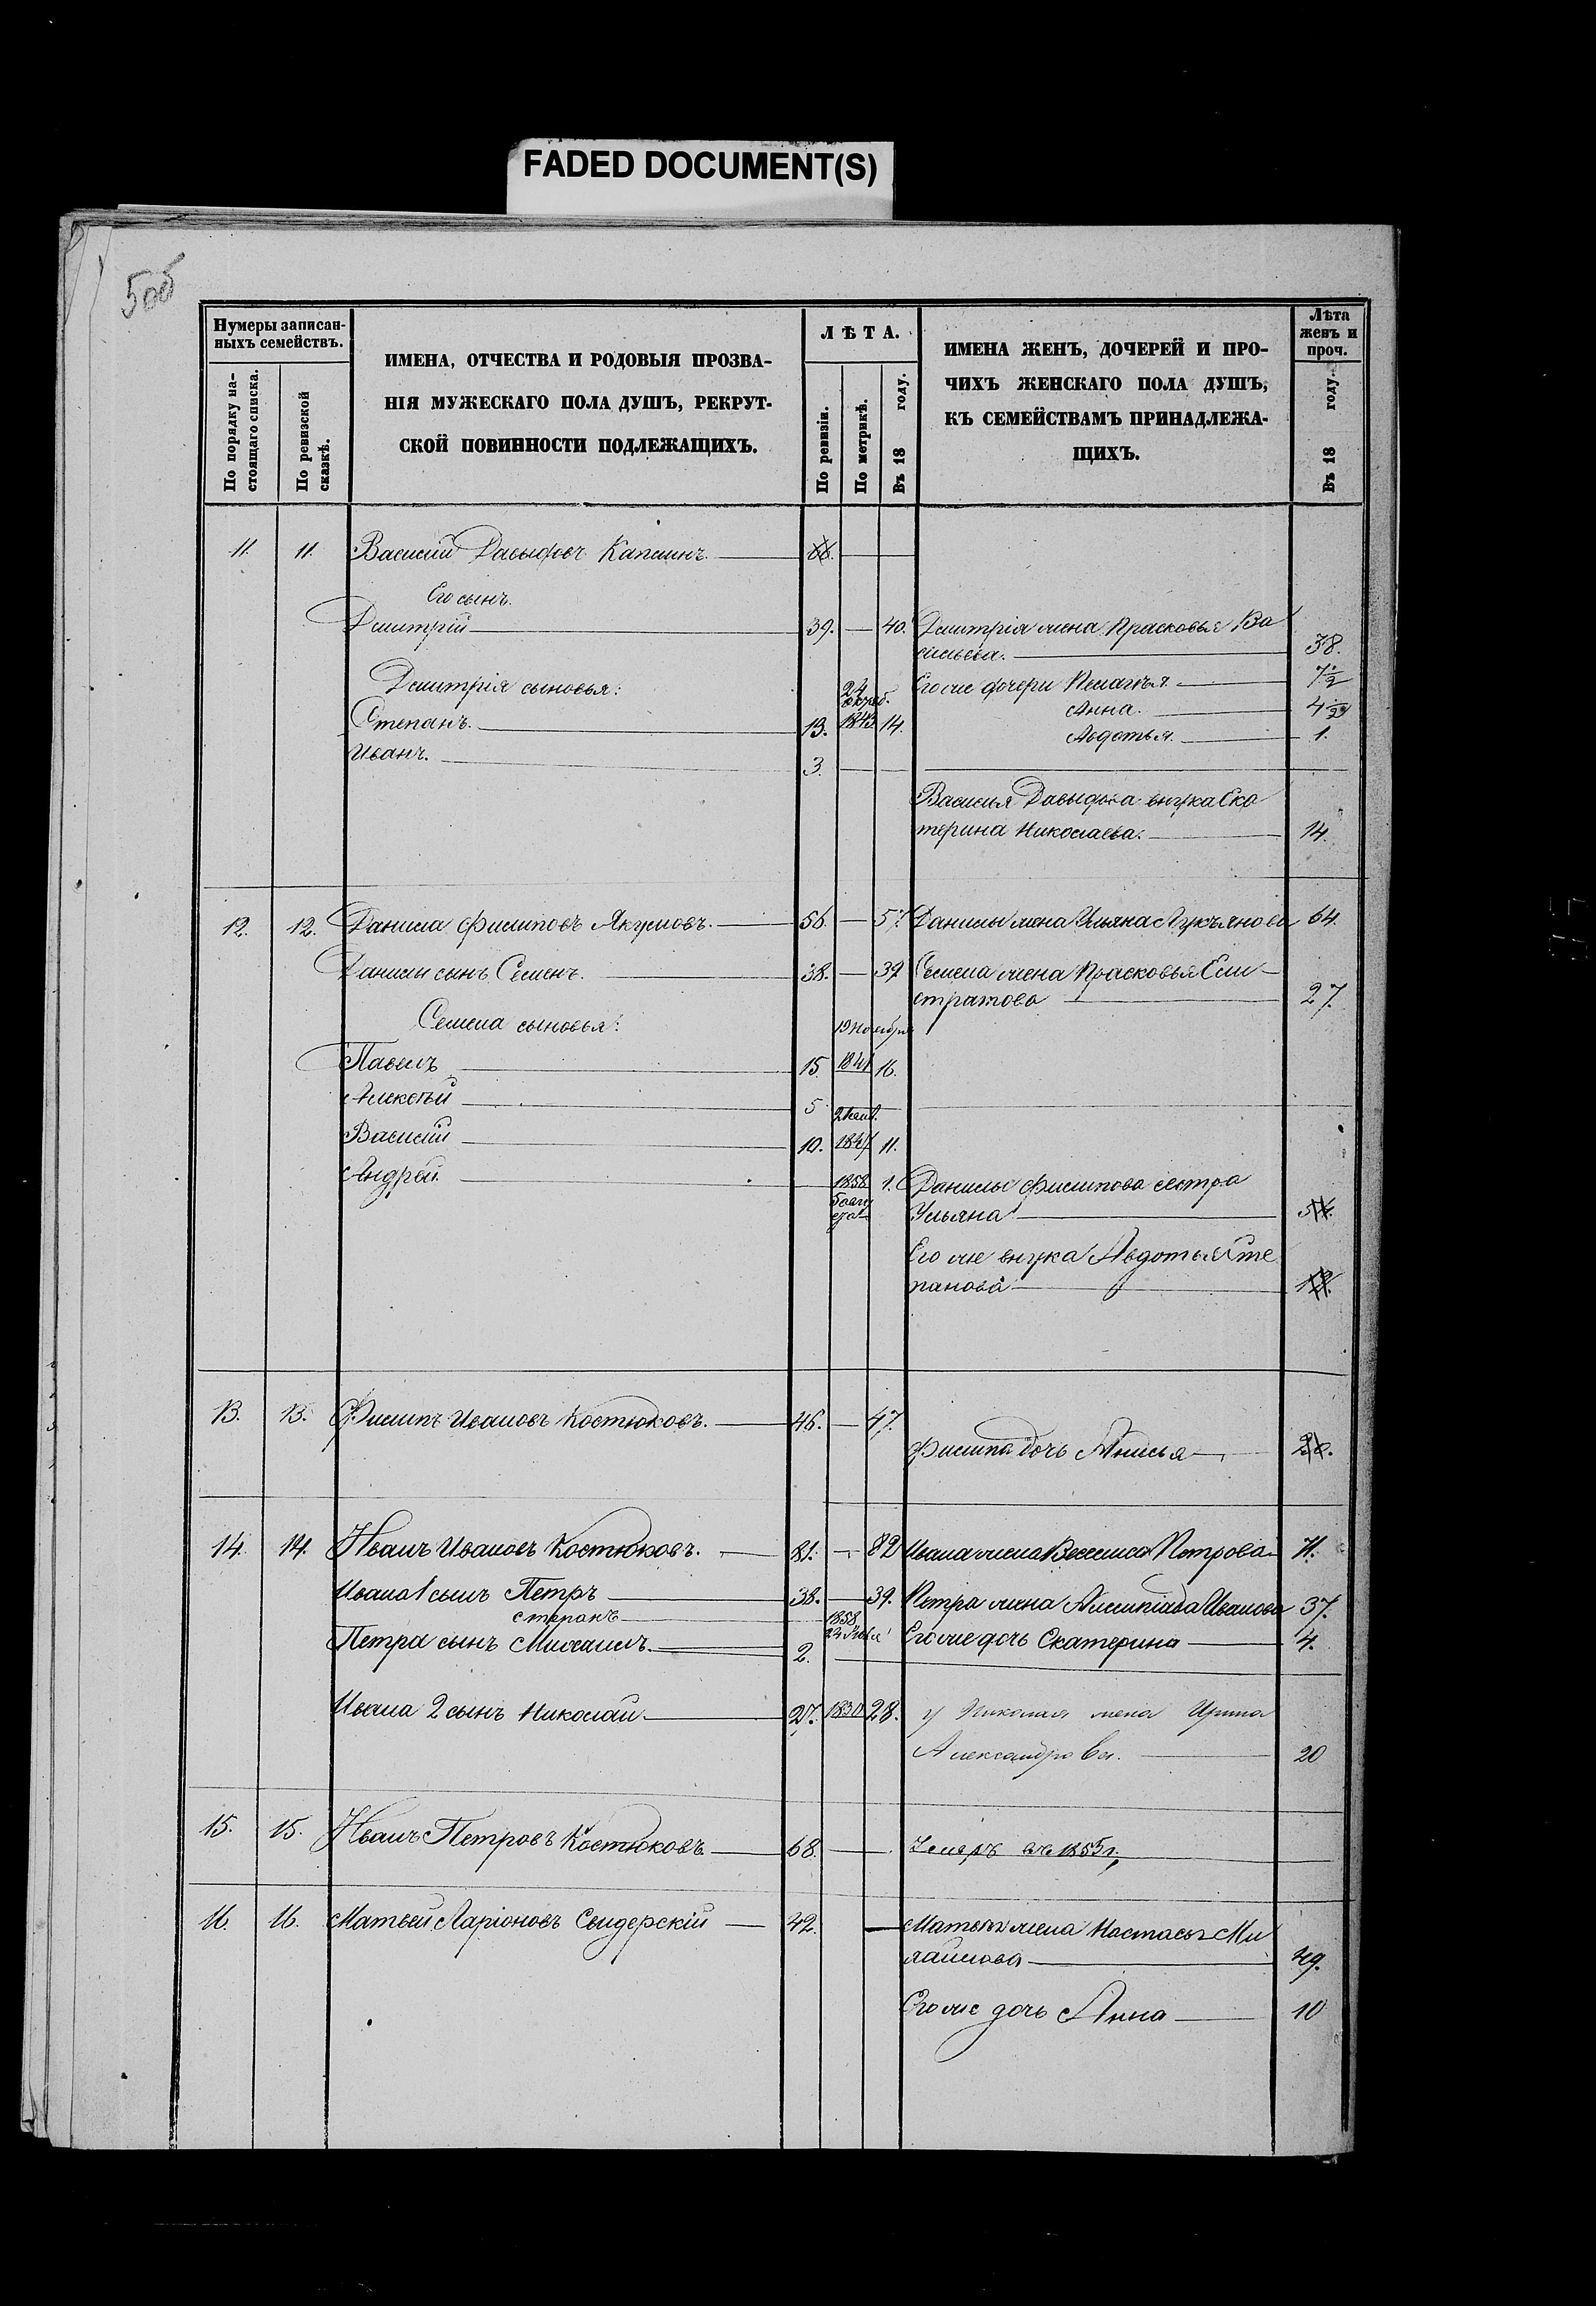 FADED DOCUMENT(S)
5об
Нумеры записан-
ныхъ семействъ.
По порядку на-
стоящаго списка.
По ревизской
сказкѣ.
ИМЕНА, ОТЧЕСТВА И РОДОВЫЯ ПРОЗВА-
НІЯ МУЖЕСКАГО ПОЛА ДУШЪ, РЕКРУТ-
СКОЙ ПОВИННОСТИ ПОДЛЕЖАЩИХЪ.
ЛѢТА.
По ревизіи.
По метрикѣ.
Въ 18 году.
ИМЕНА ЖЕНЪ, ДОЧЕРЕЙ И ПРО-
ЧИХЪ ЖЕНСКАГО ПОЛА ДУШЪ,
КЪ СЕМЕЙСТВАМЪ ПРИНАДЛЕЖА-
ЩИХЪ.
Лѣта
женъ и
проч.
Въ 18 году.
11. 11. Василій Давыдовъ Капшинъ.
Его сынъ.
Дмитрій 39. — 40. Дмитрія жена Прасковья Ва
сильева. 38.
Дмитрія сыновья: 24 Его же дочери Пелагѣя 7 1/2
Анна. 4
Степанъ. 13. 1843 14.
Авдотья. 1.
Иванъ. 3.
Василья Давыдова внука Ека
терина Николаева. 14.
12. 12. Данила Филиповъ Якушовъ. 56. — 57. Данилы жена Ульяна Лукьянова 64.
Данилы сынъ Семенъ. 38. — 39. Семена жена Прасковья Ели-
стратова 27.
Семена сыновья: 19 Ноября
Павелъ 15. 1841 16.
Алексѣй 5
Василій 10. 1847 11.
Андрей. 1858 1. Данилы Филипова сестра
Ульяна
Его же внука Авдотья Сте
панова
13. 13. Филипъ Ивановъ Костюковъ. 46. — 47.
Филипа дочь Анисья
14. 14. Иванъ Ивановъ Костюковъ. 81. — 82 Ивана жена Василиса Петрова 71.
Ивана 1 сынъ Петръ 38. — 39. Петра жена Алимпіада Иванова 37.
Степанъ 1858
Петра сынъ Михаилъ. 2. Его же дочь Екатерина 4.
Ивана 2 сынъ Николай. 27. 1830 28. у Николая жена Ирина
Александрова. 20
15. 15. Иванъ Петровъ Костюковъ. 68. Умеръ въ 1855 г.
16. 16. Матвей Ларіоновъ Свидерскій 42. — Матвѣя жена Настасья Ми
хайлова 49.
Его же дочь Анна 10